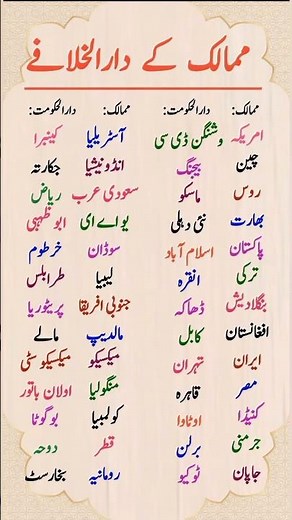 ممالک کے دارالخلافے
ممالک: دارالحکومت: ممالک: دارالحکومت:
امریکہ وشنگٹن ڈی سی آسٹریلیا کینبرا
چین بیجنگ انڈونیشیا جکارتہ
روس ماسکو سعودی عرب ریاض
بھارت نئی دہلی یو اے ای ابوظہبی
پاکستان اسلام آباد سوڈان خرطوم
ترکی انقرہ لیبیا طرابلس
بنگلادیش ڈھاکہ جنوبی افریقا پریٹوریا
افغانستان کابل مالدیپ مالے
ایران تہران میکسیکو میکسیکو سٹی
مصر قاہرہ منگولیا اولان باتور
کنیڈا اوٹاوا کولمبیا بوگوٹا
جرمنی برلن قطر دوحہ
جاپان ٹوکیو رومانیہ بخارسٹ